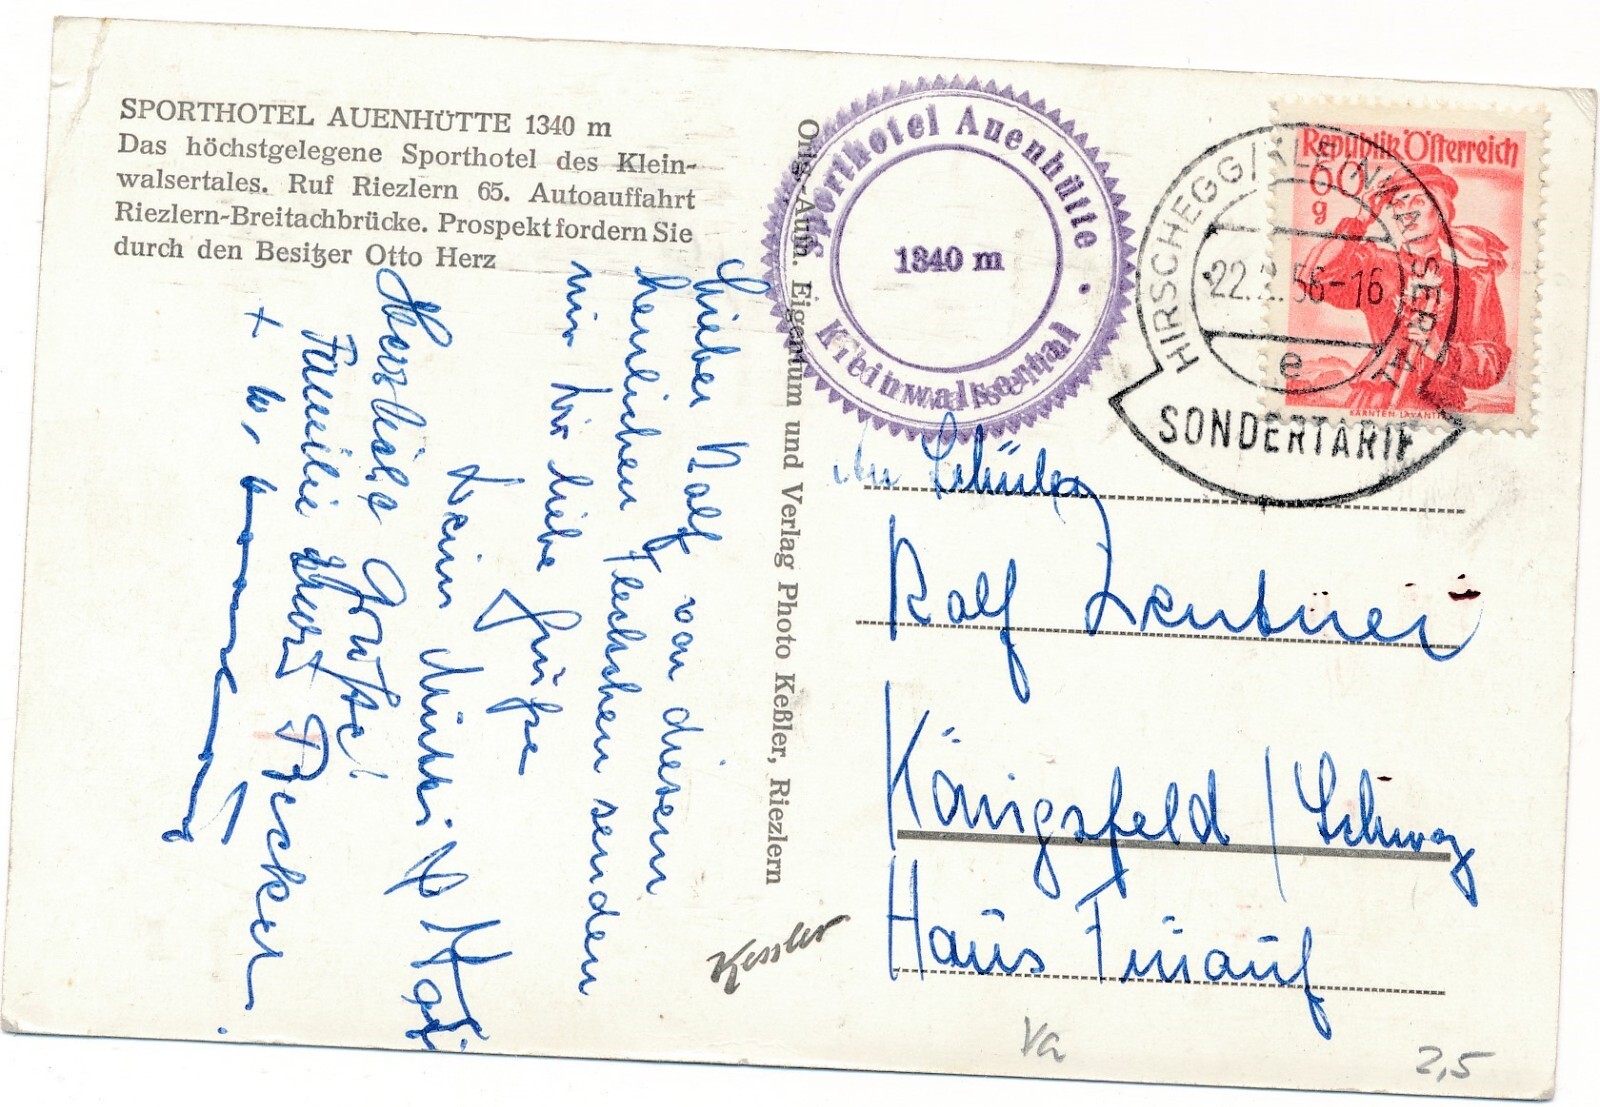 SPORTHOTEL AUENHÜTTE 1340 m
Das höchstgelegene Sporthotel des Klein-
walsertales. Ruf Riezlern 65. Autoauffahrt
Riezlern-Breitachbrücke. Prospekt fordern Sie
durch den Besitzer Otto Herz
Lieber Rolf von diesem
herrlichen Fleckchen senden
wir Dir liebe Grüße
Deine
Herzliche Grüße!
Familie Becker
Orig.-Aufn. Eigentum und Verlag Photo Keßler, Riezlern
Kessler
Sporthotel Auenhütte
1340 m
Kleinwalsertal
Republik Österreich
60
g
KÄRNTEN-LAVANTTAL
HIRSCHEGG/KLEINWALSERTAL
22. 56-16
e
SONDERTARIF
An Schüler
Rolf Zentner
Königsfeld / Schwarz
Haus
Va
2,5